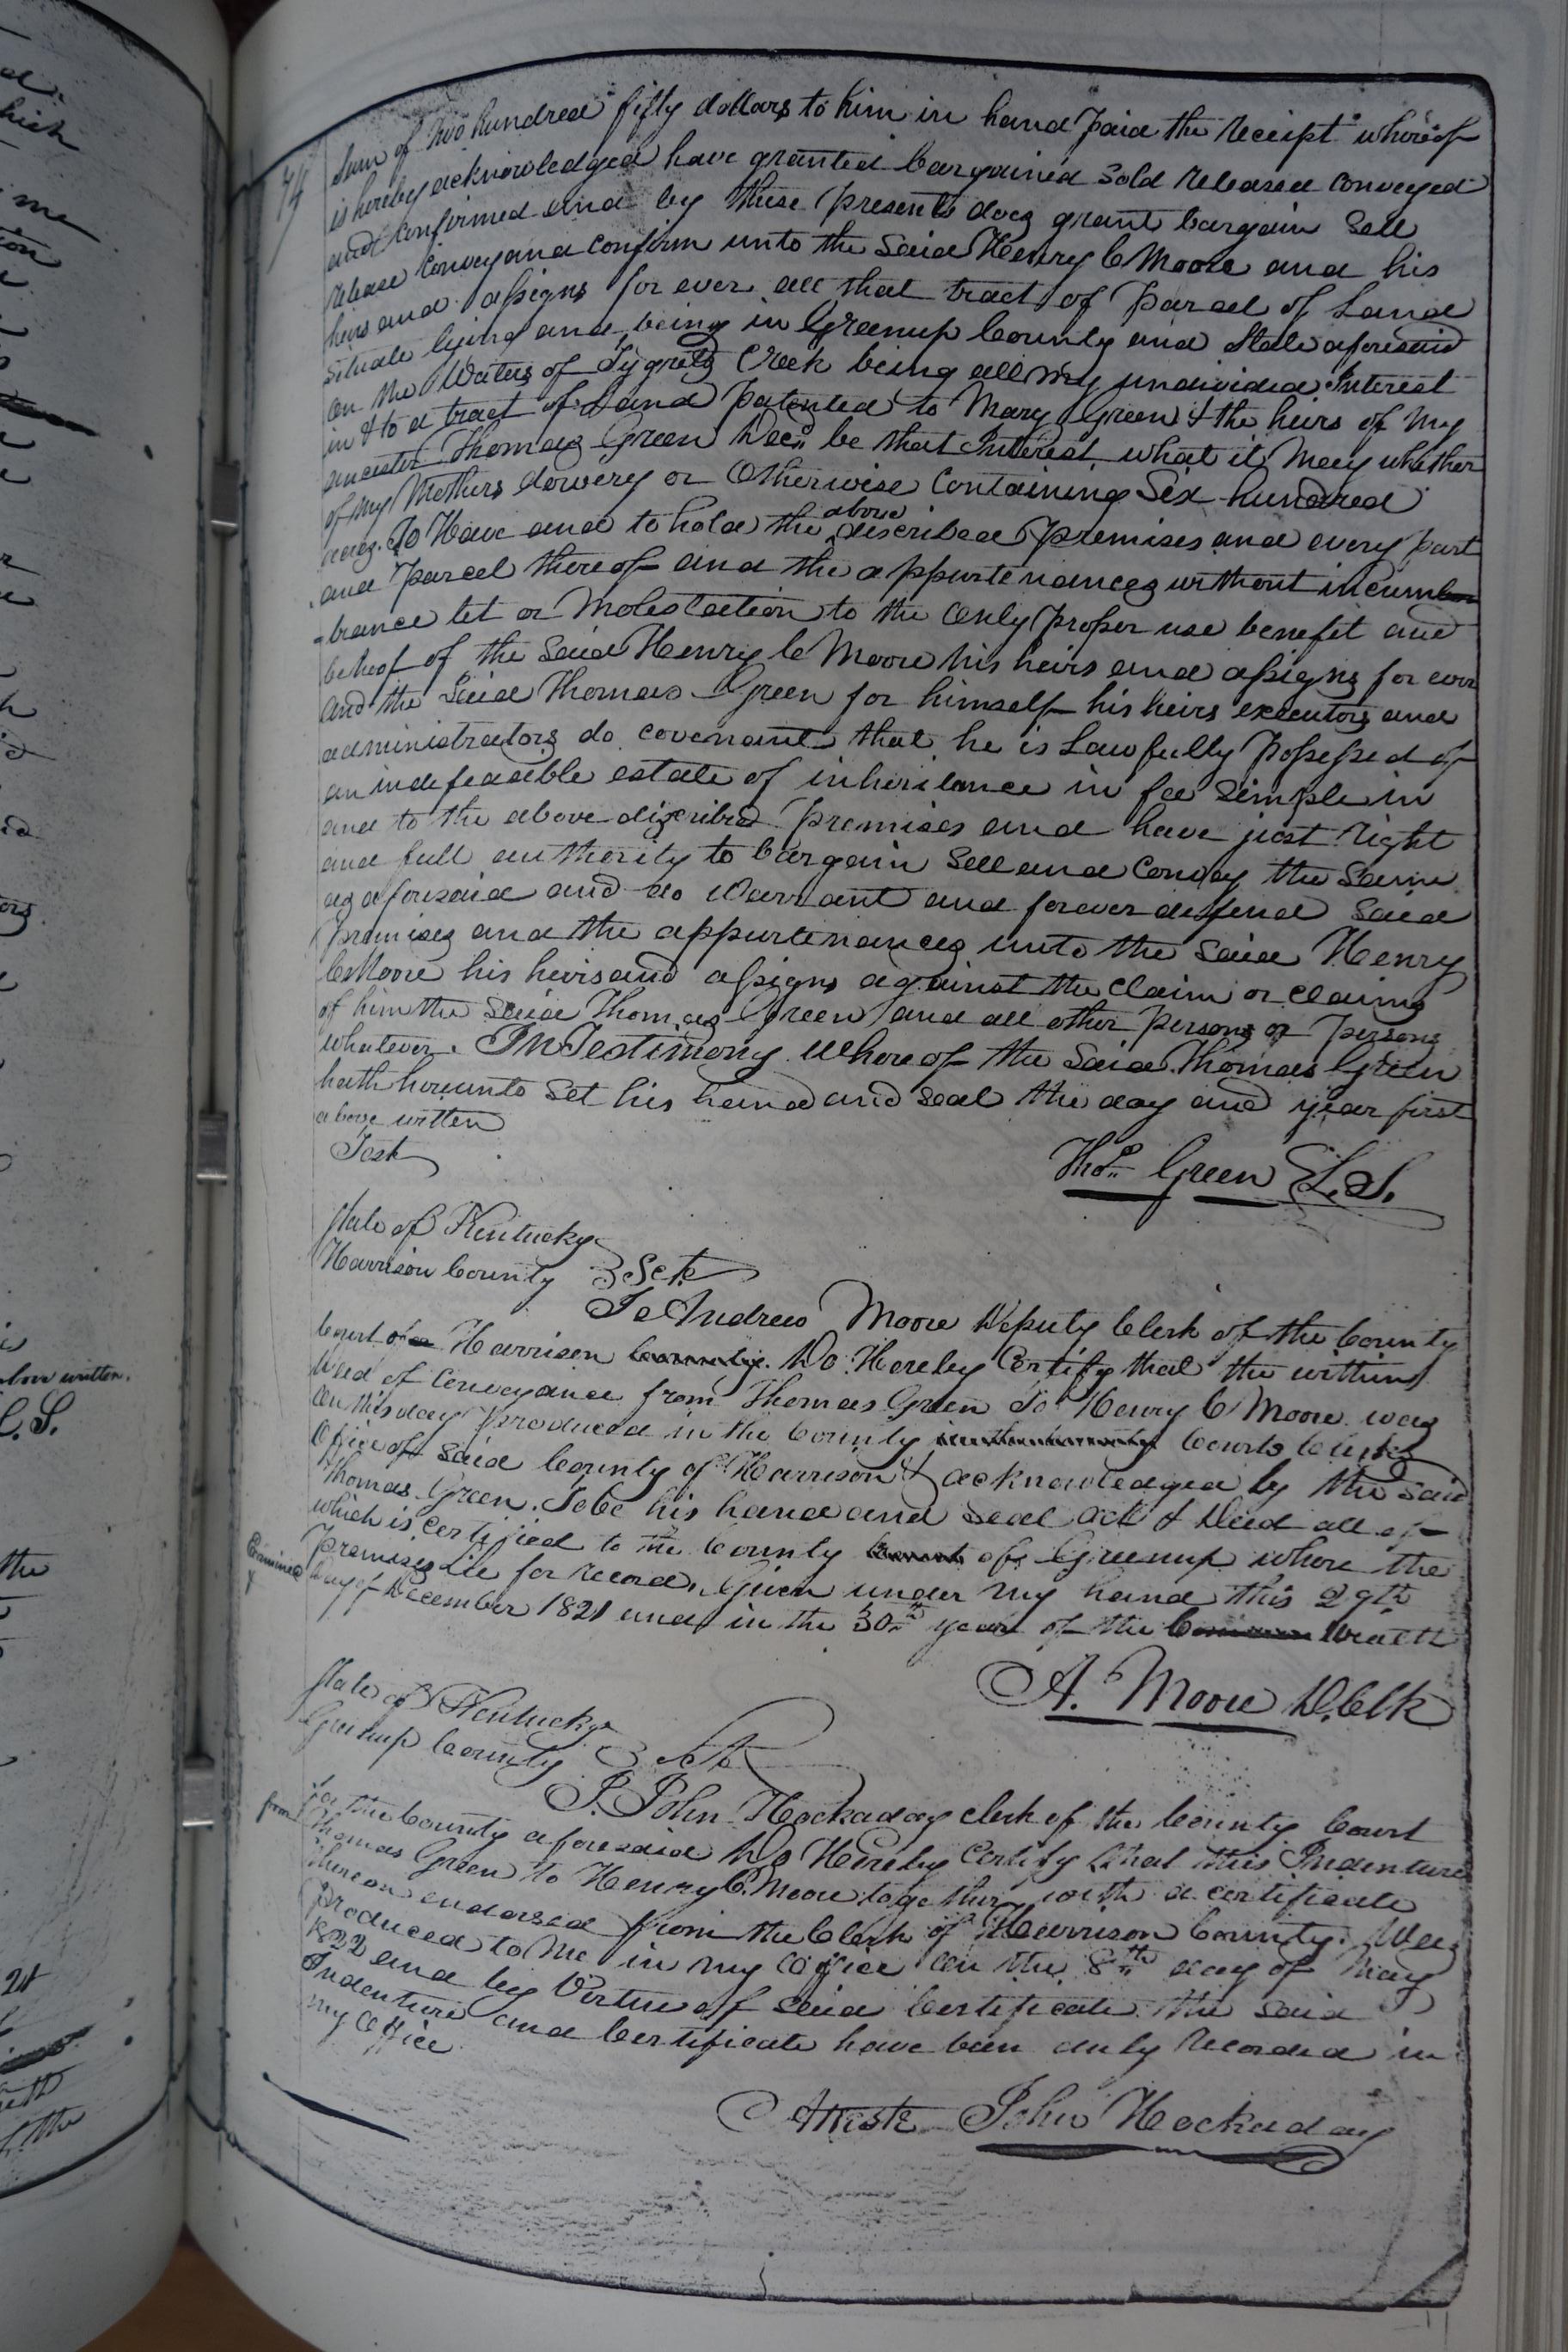 74
Sum of two hundred fifty dollars to him in hand paid the receipt whereof
is hereby acknowledged have granted bargained sold released conveyed
and confirmed and by these presents does grant bargain Sell
release convey and confirm unto the Said Henry C Moore and his
heirs and assigns for ever all that tract of parcel of Land
situate lying and being in Greenup County and State aforesaid
on the Waters of Tygrets Creek being all my undivided Interest
in & to a tract of Land patented to Mary Green & the heirs of my
ancestor Thomas Green Decd be that Interest what it may whether
of my Mothers dowery or Otherwise Containing Six hundred
acres. To Have and to hold the above described premises and every part
and parcel thereof and the appurtenances without incum
-brance let or Molestation to the Only proper use benefit and
behoof of the Said Henry C Moore his heirs and assigns for ever
and the Said Thomas Green for himself his heirs executors and
administrators do covenant that he is Lawfully possessed of
an indefeasible estate of inheritance in fee Simple in
and to the above discribed premises and have just right
and full authority to bargain Sell and Convey the Same
as aforesaid and do Warrant and forever defend Said
premises and the appurtenances unto the Said Henry
C Moore his heirs and assigns against the Claim or Claims
of him the Said Thomas Green and all other persons or persons
whatever. In Testimony Whereof the Said Thomas Green
hath hereunto Set his hand and seal the day and year first
above written
Test
Thos Green L.S.
State of Kentucky
Harrison County Sct
I Andrew Moore Deputy Clerk of the County
Court of Harrison County. Do Hereby Certify that the within
Deed of Conveyance from Thomas Green To Henry C Moore was
on this day produced in the County Courts Clerks
Office of said County of Harrison & acknowledged by the said
Thomas Green. To be his hand and Seal act & Deed all of
which is certified to the County Court of Greenup where the
premises Lie for record. Given under my hand this 29th
Examined
day of December 1821 and in the 30th year of the Common Wealth
A. Moore D. Clk
State of Kentucky
Greenup County Sct
I. John Hockaday clerk of the County Court
for the County aforesaid Do Hereby Certify that this Indenture
from
Thomas Green to Henry C. Moore together with a certificate
thereon endorsed from the Clerk of Harrison County. Was
produced to me in my Office on the 8th day of May
1822 and by Virtue of said Certificate the said
Indenture and Certificate have been duly Recorded in
my Office
Atteste John Hockaday
above written.
L.S.